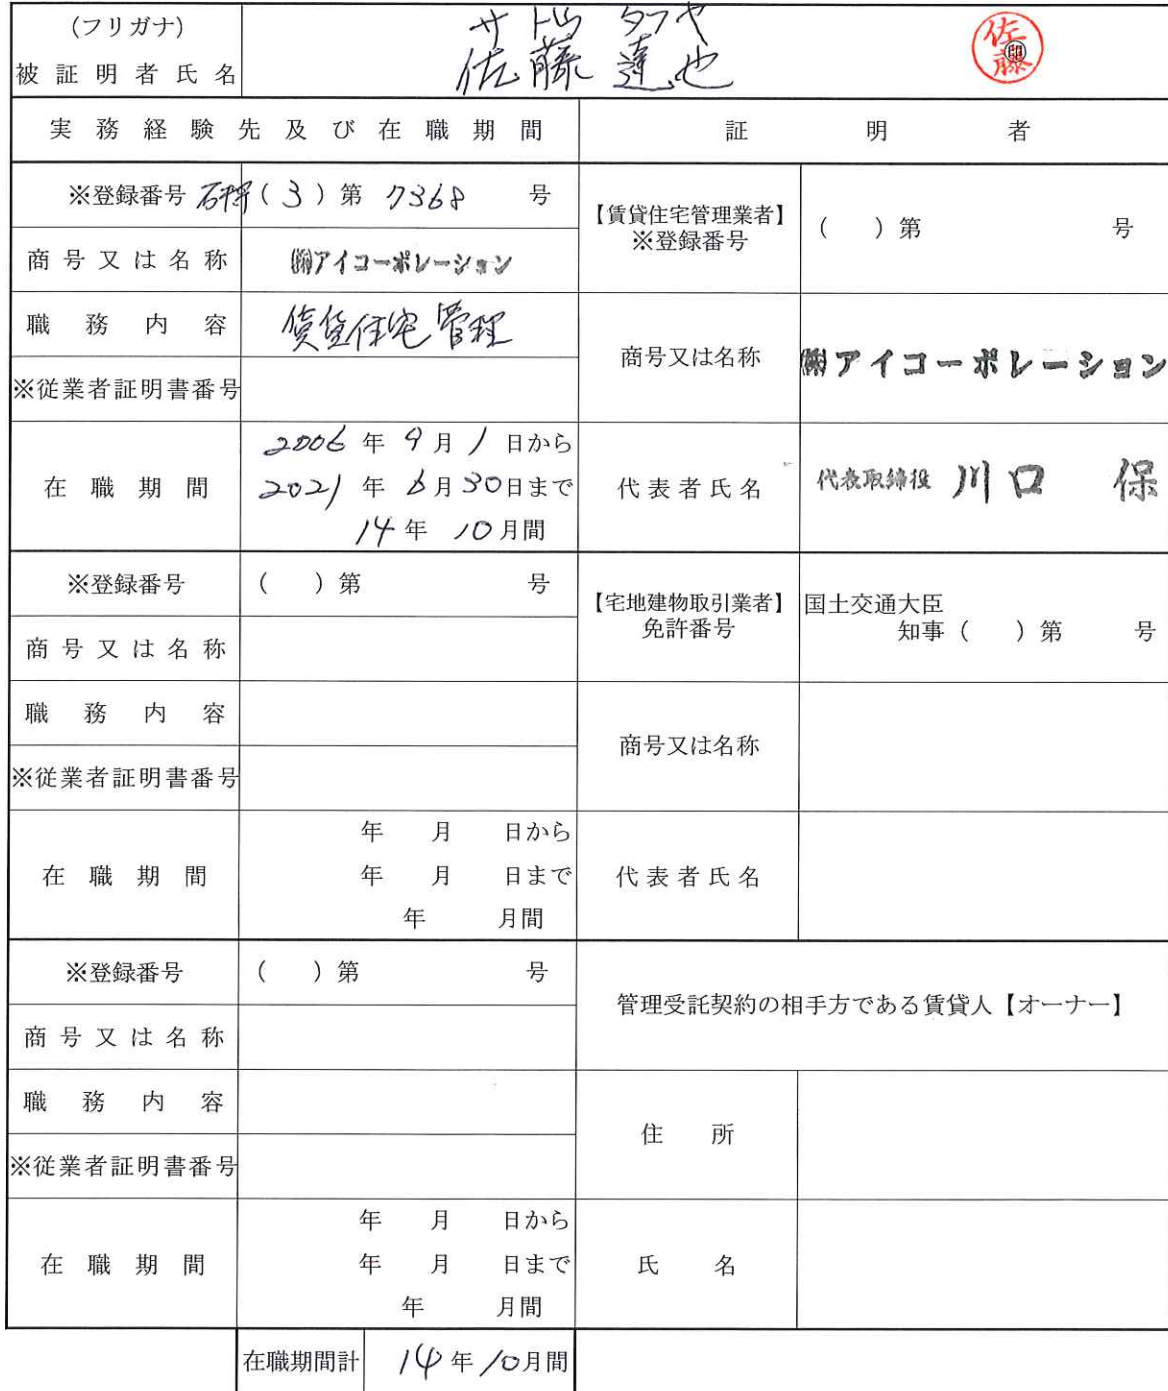 (フリガナ) サトウ タツヤ
被証明者氏名 佐藤達也 佐藤 ㊞
実務経験先及び在職期間 証明者
※登録番号 石川(3)第7368号
商号又は名称 ㈱アイコーポレーション
職務内容 賃貸住宅管理
※従業者証明書番号
在職期間 2006年9月1日から
2021年6月30日まで
14年10月間
【賃貸住宅管理業者】
※登録番号 ( )第 号
商号又は名称 ㈱アイコーポレーション
代表者氏名 代表取締役 川口 保
※登録番号 ( )第 号
商号又は名称
職務内容
※従業者証明書番号
在職期間 年 月 日から
年 月 日まで
年 月間
【宅地建物取引業者】 国土交通大臣
免許番号 知事( )第 号
商号又は名称
代表者氏名
※登録番号 ( )第 号
商号又は名称
職務内容
※従業者証明書番号
在職期間 年 月 日から
年 月 日まで
年 月間
管理受託契約の相手方である賃貸人【オーナー】
住所
氏名
在職期間計 14年10月間